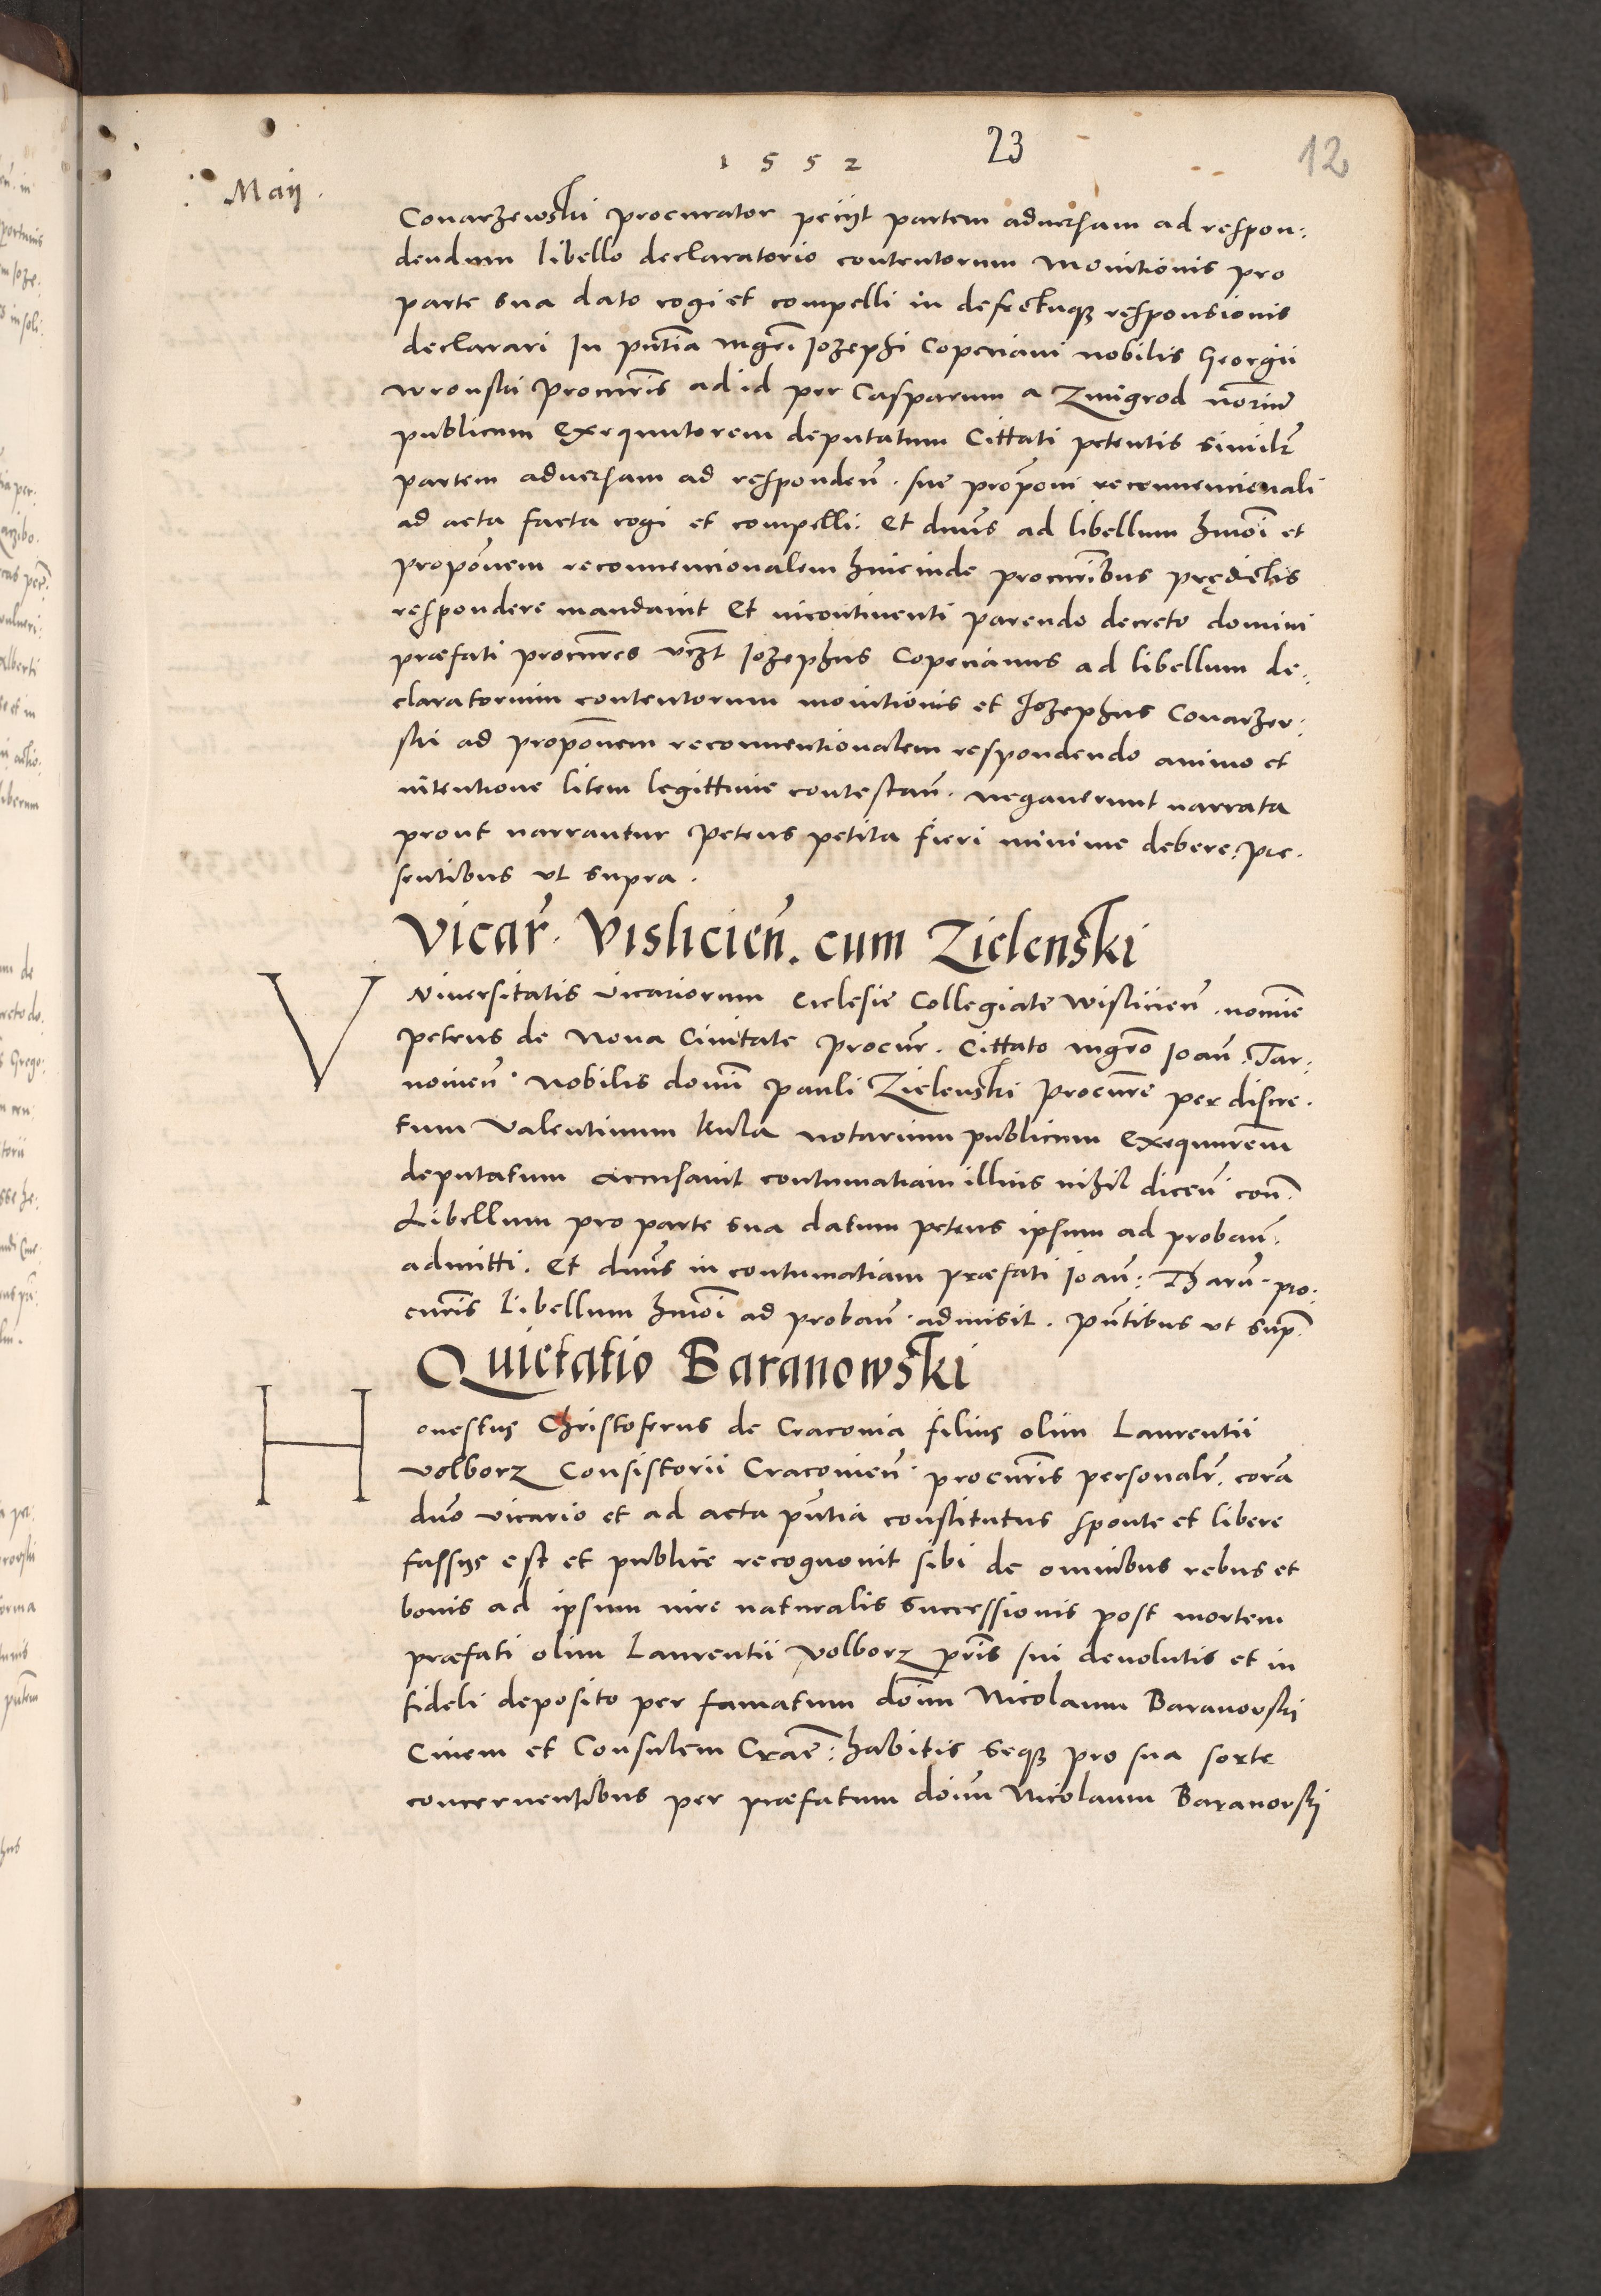 1552
23
12
Maij.
Conarzewski procurator peciyt partem aduersam ad respon:
dendum libello declaratorio contentorum monitionis pro
parte sua dato cogi et compelli in defectuque responsionis
declarari In pñtia mgri Jozephi Copeciani nobilis Georgii
Wronski Procuris ad id per Casparum a Zmigrod noriũ
publicum exequutorem deputatum Cittati petentis similr
partem aduersam ad responden̄. sue propõni reconuencionali
ad acta facta cogi et compelli: Et dnus ad libellum hmõi et
propõnem reconuencionalem hincinde procuribus prędictis
respondere mandauit Et incontinenti parendo decreto domini
præfati procures vczt Jozephus Copecianus ad libellum de:
claratorium contentorum monitionis et Jozephus Conarzew:
ski ad propõnem reconuentionalem respondendo animo et
intentione litem legittime contestan̄. negauerunt narrata
prout narrantur Petens petita fieri minime debere. Pre:
sentibus vt supra.
Vicar̄. Vislicien̄. cum Zielenski
Vniuersitatis Vicariorum Ecclesie Collegiate Wislicien̄. nomine
Petrus de Noua Ciuitate Procur̄. Cittato mgrõ Ioan̄: Tar:
nouien̄. Nobilis domi Pauli Zielenski Procure per discre:
tum Valentinum Kula notarium publicum exequurem
deputatum accusauit contumatiam illius nihil dicen̄ con̄.
Libellum pro parte sua datum petens ipsum ad proban̄.
admitti. Et dnus in contumatiam præfati Ioan̄: Tharn̄. pro:
curis libellum hmõi ad proban̄. admisit. Pñtibus vt sup.
Quietatio Baranowski
Honestus Christoferus de Cracouia filius olim Laurentii
Volborz Consistorii Cracouien̄. procuris personalr. corã
dño vicario et ad acta pñtia constitutus sponte et libere
fassus est et publice recognouit sibi de omnibus rebus et
bonis ad ipsum iure naturalis successionis post mortem
præfati olim Laurentii Volborz pris sui deuolutis et in
fideli deposito per famatum doim Nicolaum Baranowski
Ciuem et Consulem Crac̃: habitis seque pro sua sorte
concernentibus per præfatum doim Nicolaum Baranowski